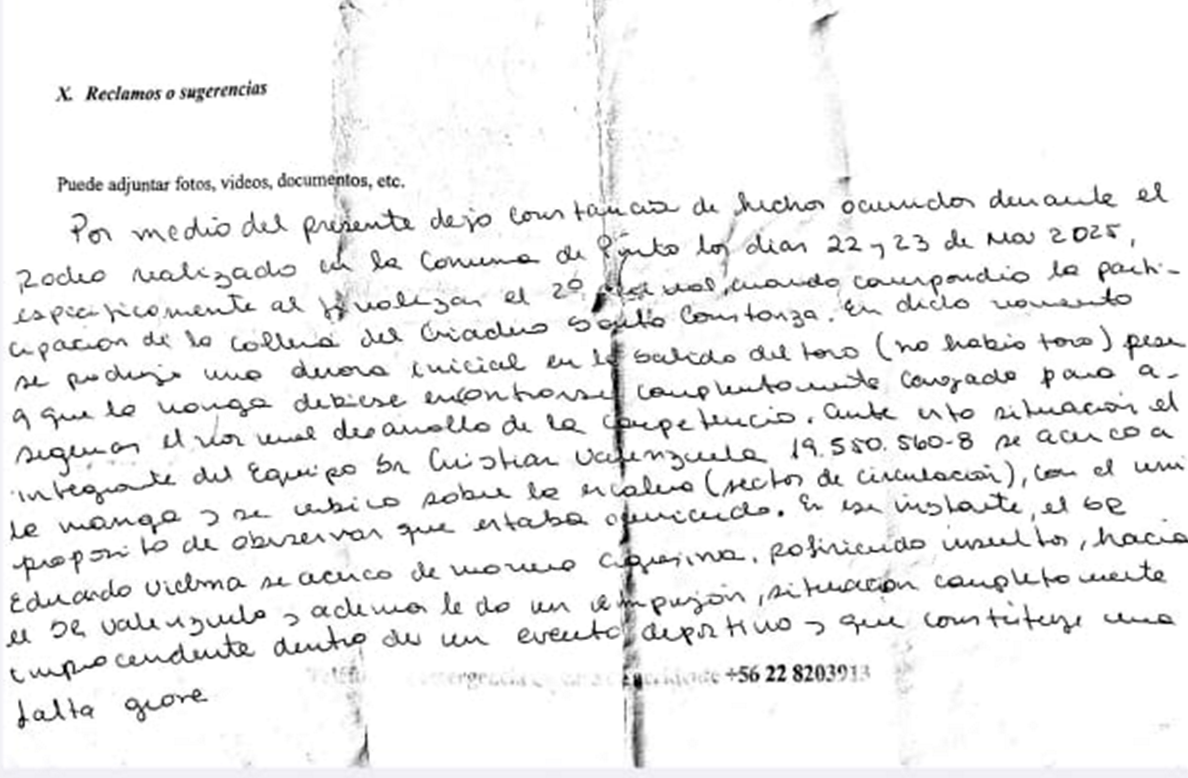 X. Reclamos o sugerencias
Puede adjuntar fotos, videos, documentos, etc.
Por medio del presente dejo constancia de hechos ocurridos durante el
Rodeo realizado en la Comuna de Pinto los dias 22 y 23 de Nov 2025,
especificamente al finalizar el 2º, cuando correspondio la parti-
cipación de la collera del Criadero Santa Constanza. En dicho momento
se produjo una demora inicial en la salida del toro (no habia toro) pese
a que la manga debiese encontrarse completamente cargada para a-
segurar el normal desarrollo de la competencia. Ante esta situación el
integrante del Equipo Sr Cristian Valenzuela 19.550.560-8 se acerco a
la manga y se ubico sobre la escalera (sector de circulación), con el uni
proposito de observar que estaba ocurriendo. En ese instante, el SR
Eduardo Videma se acerco de manera agresiva. profiriendo insultos, hacia
el SR Valenzuela y ademas le da un empujón, situación completamente
improcendente dentro de un evento deportivo y que constituye una
falta grave
+56 22 8203913